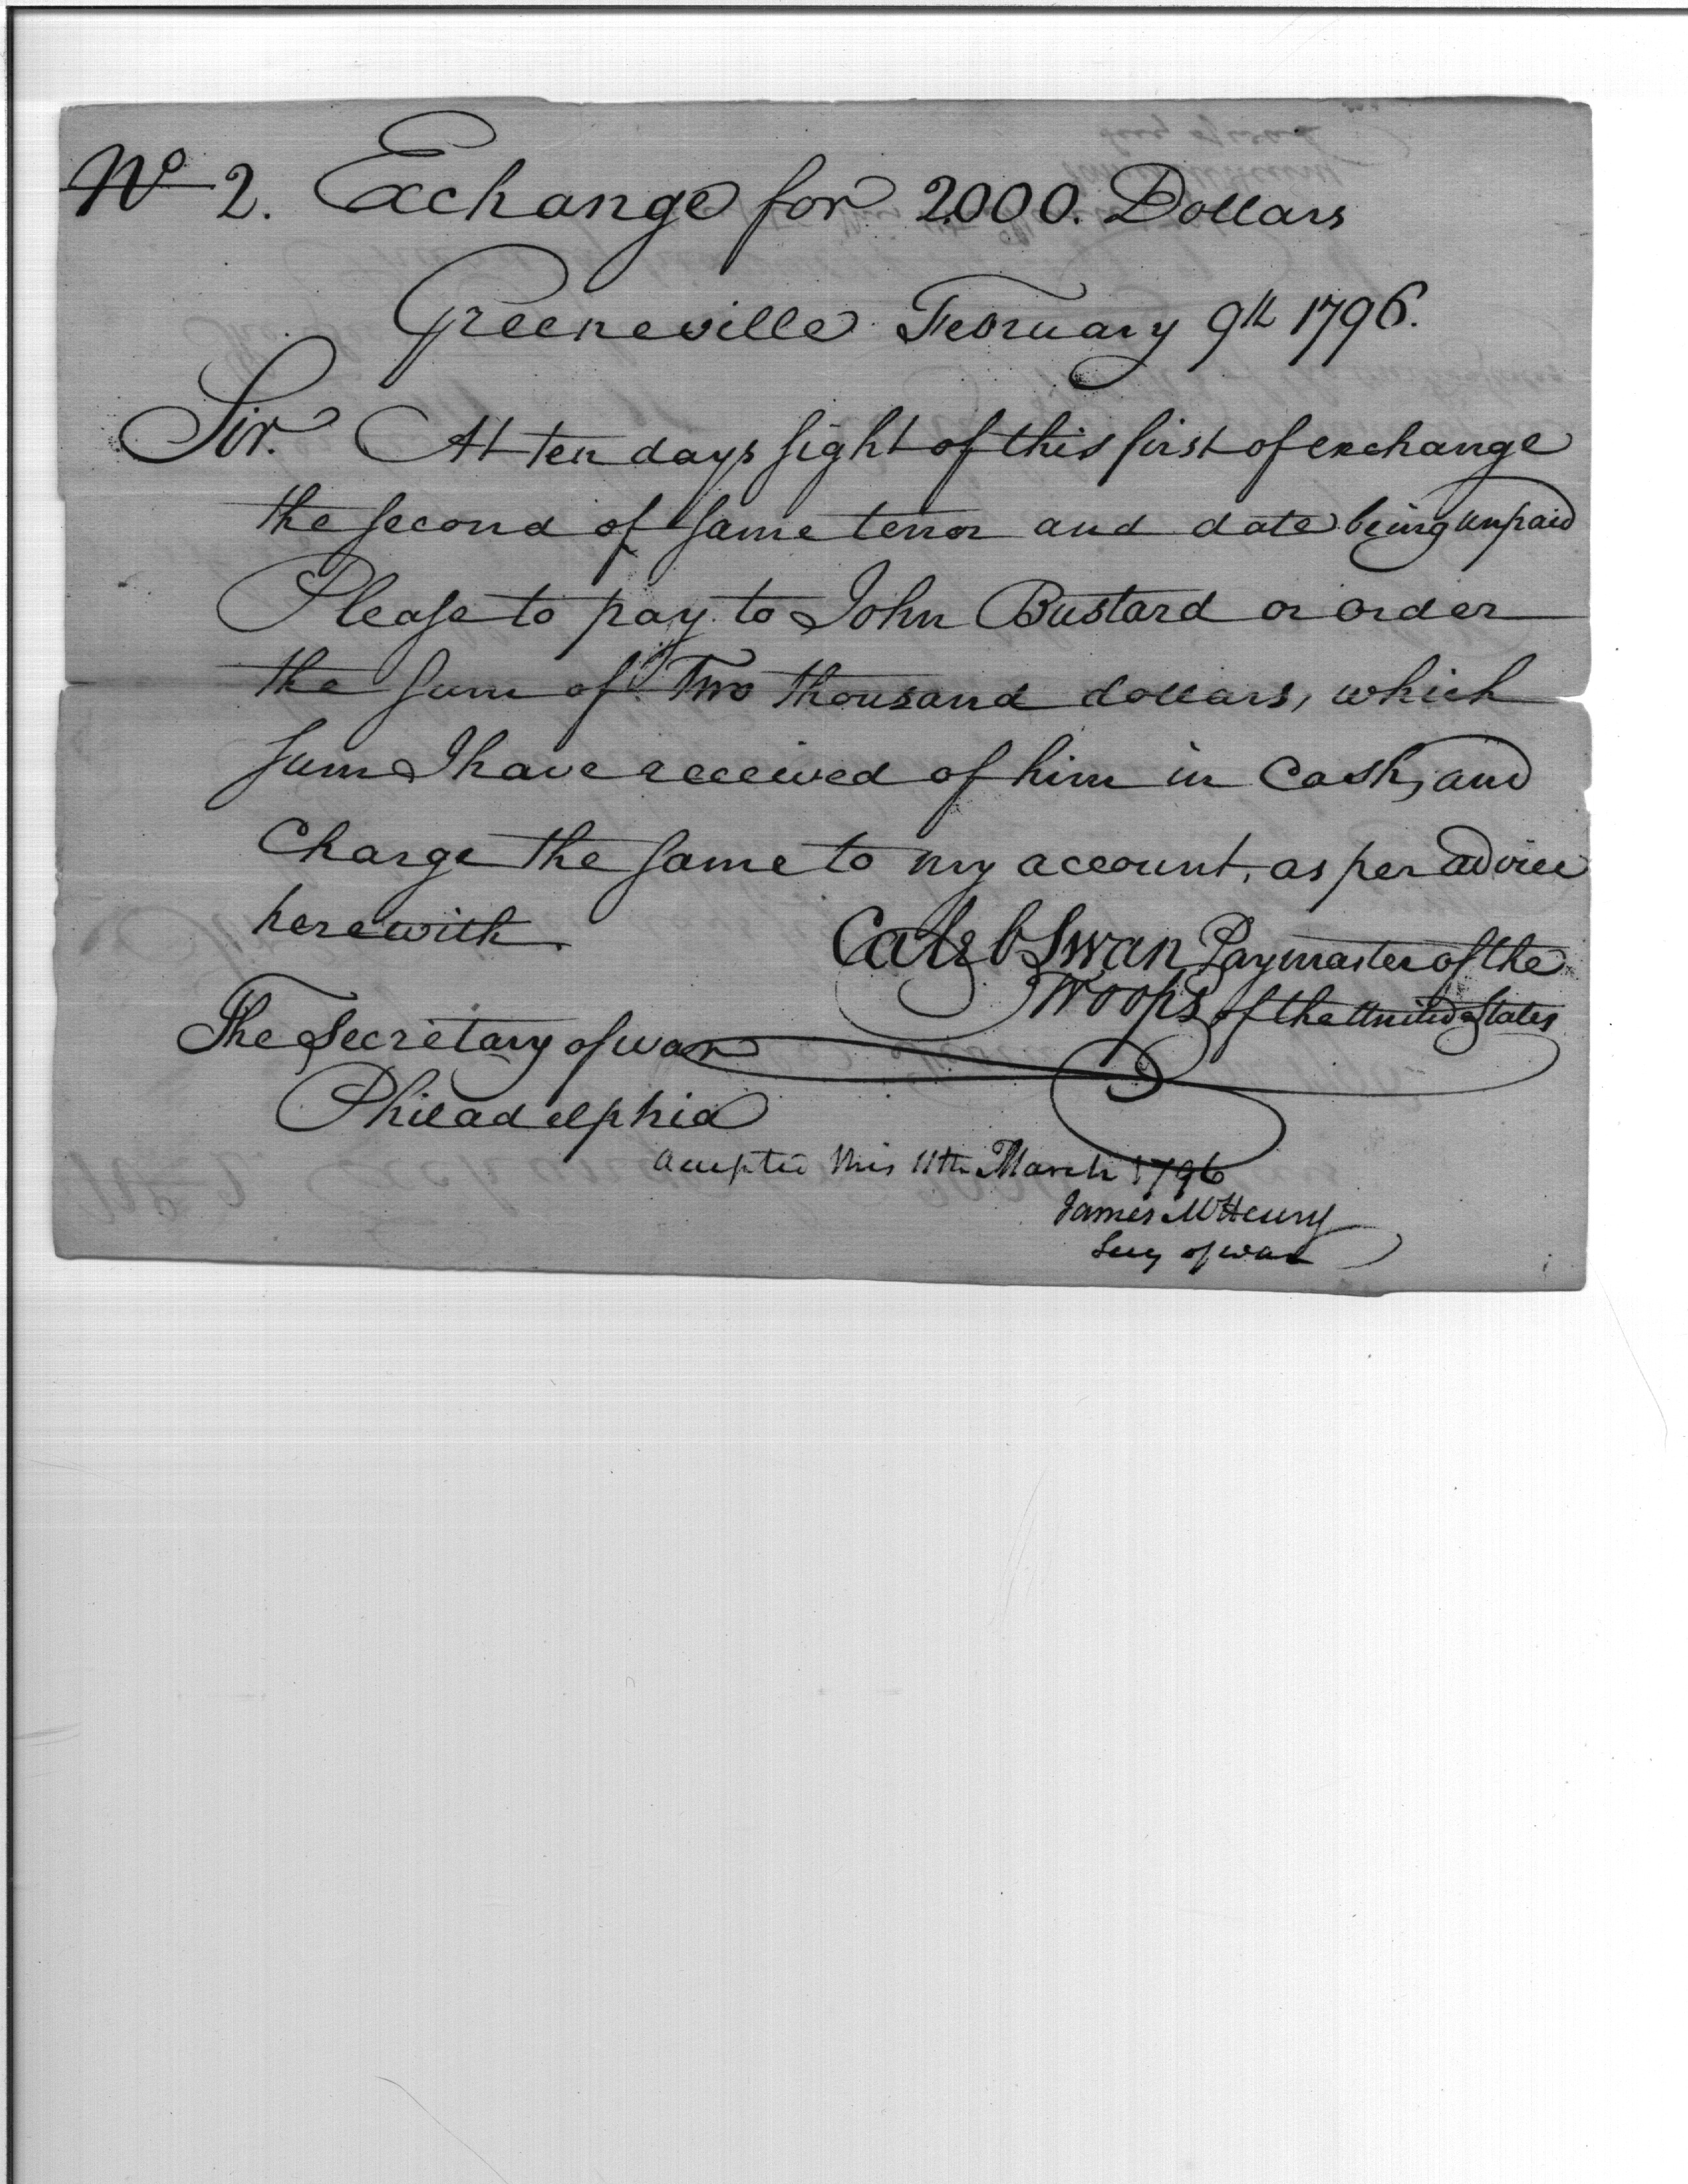 No 2. Exchange for 2000. Dollars
Greeneville February 9th 1796.
Sir. At ten days sight of this first of exchange
the second of same tenor and date being unpaid
Please to pay to John Bustard or order
the sum of Two thousand dollars, which
sum I have received of him in Cash, and
Charge the same to my account, as per advice
herewith.
Caleb Swan Paymaster of the
Troops of the United States
The Secretary of war
Philadelphia
Accepted this 11th March 1796
James McHenry
Secy of war